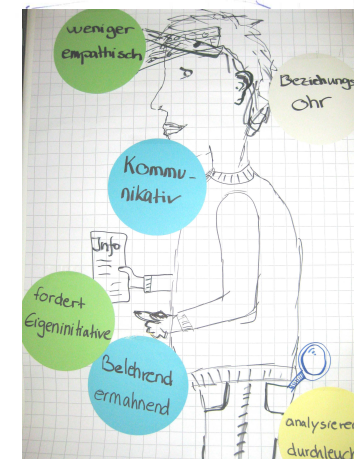 weniger
empathisch
Beziehungs
Ohr
Kommu-
nikativ
Info
fordert
Eigeninitiative
Belehrend
ermahnend
analysieren
durchleuch